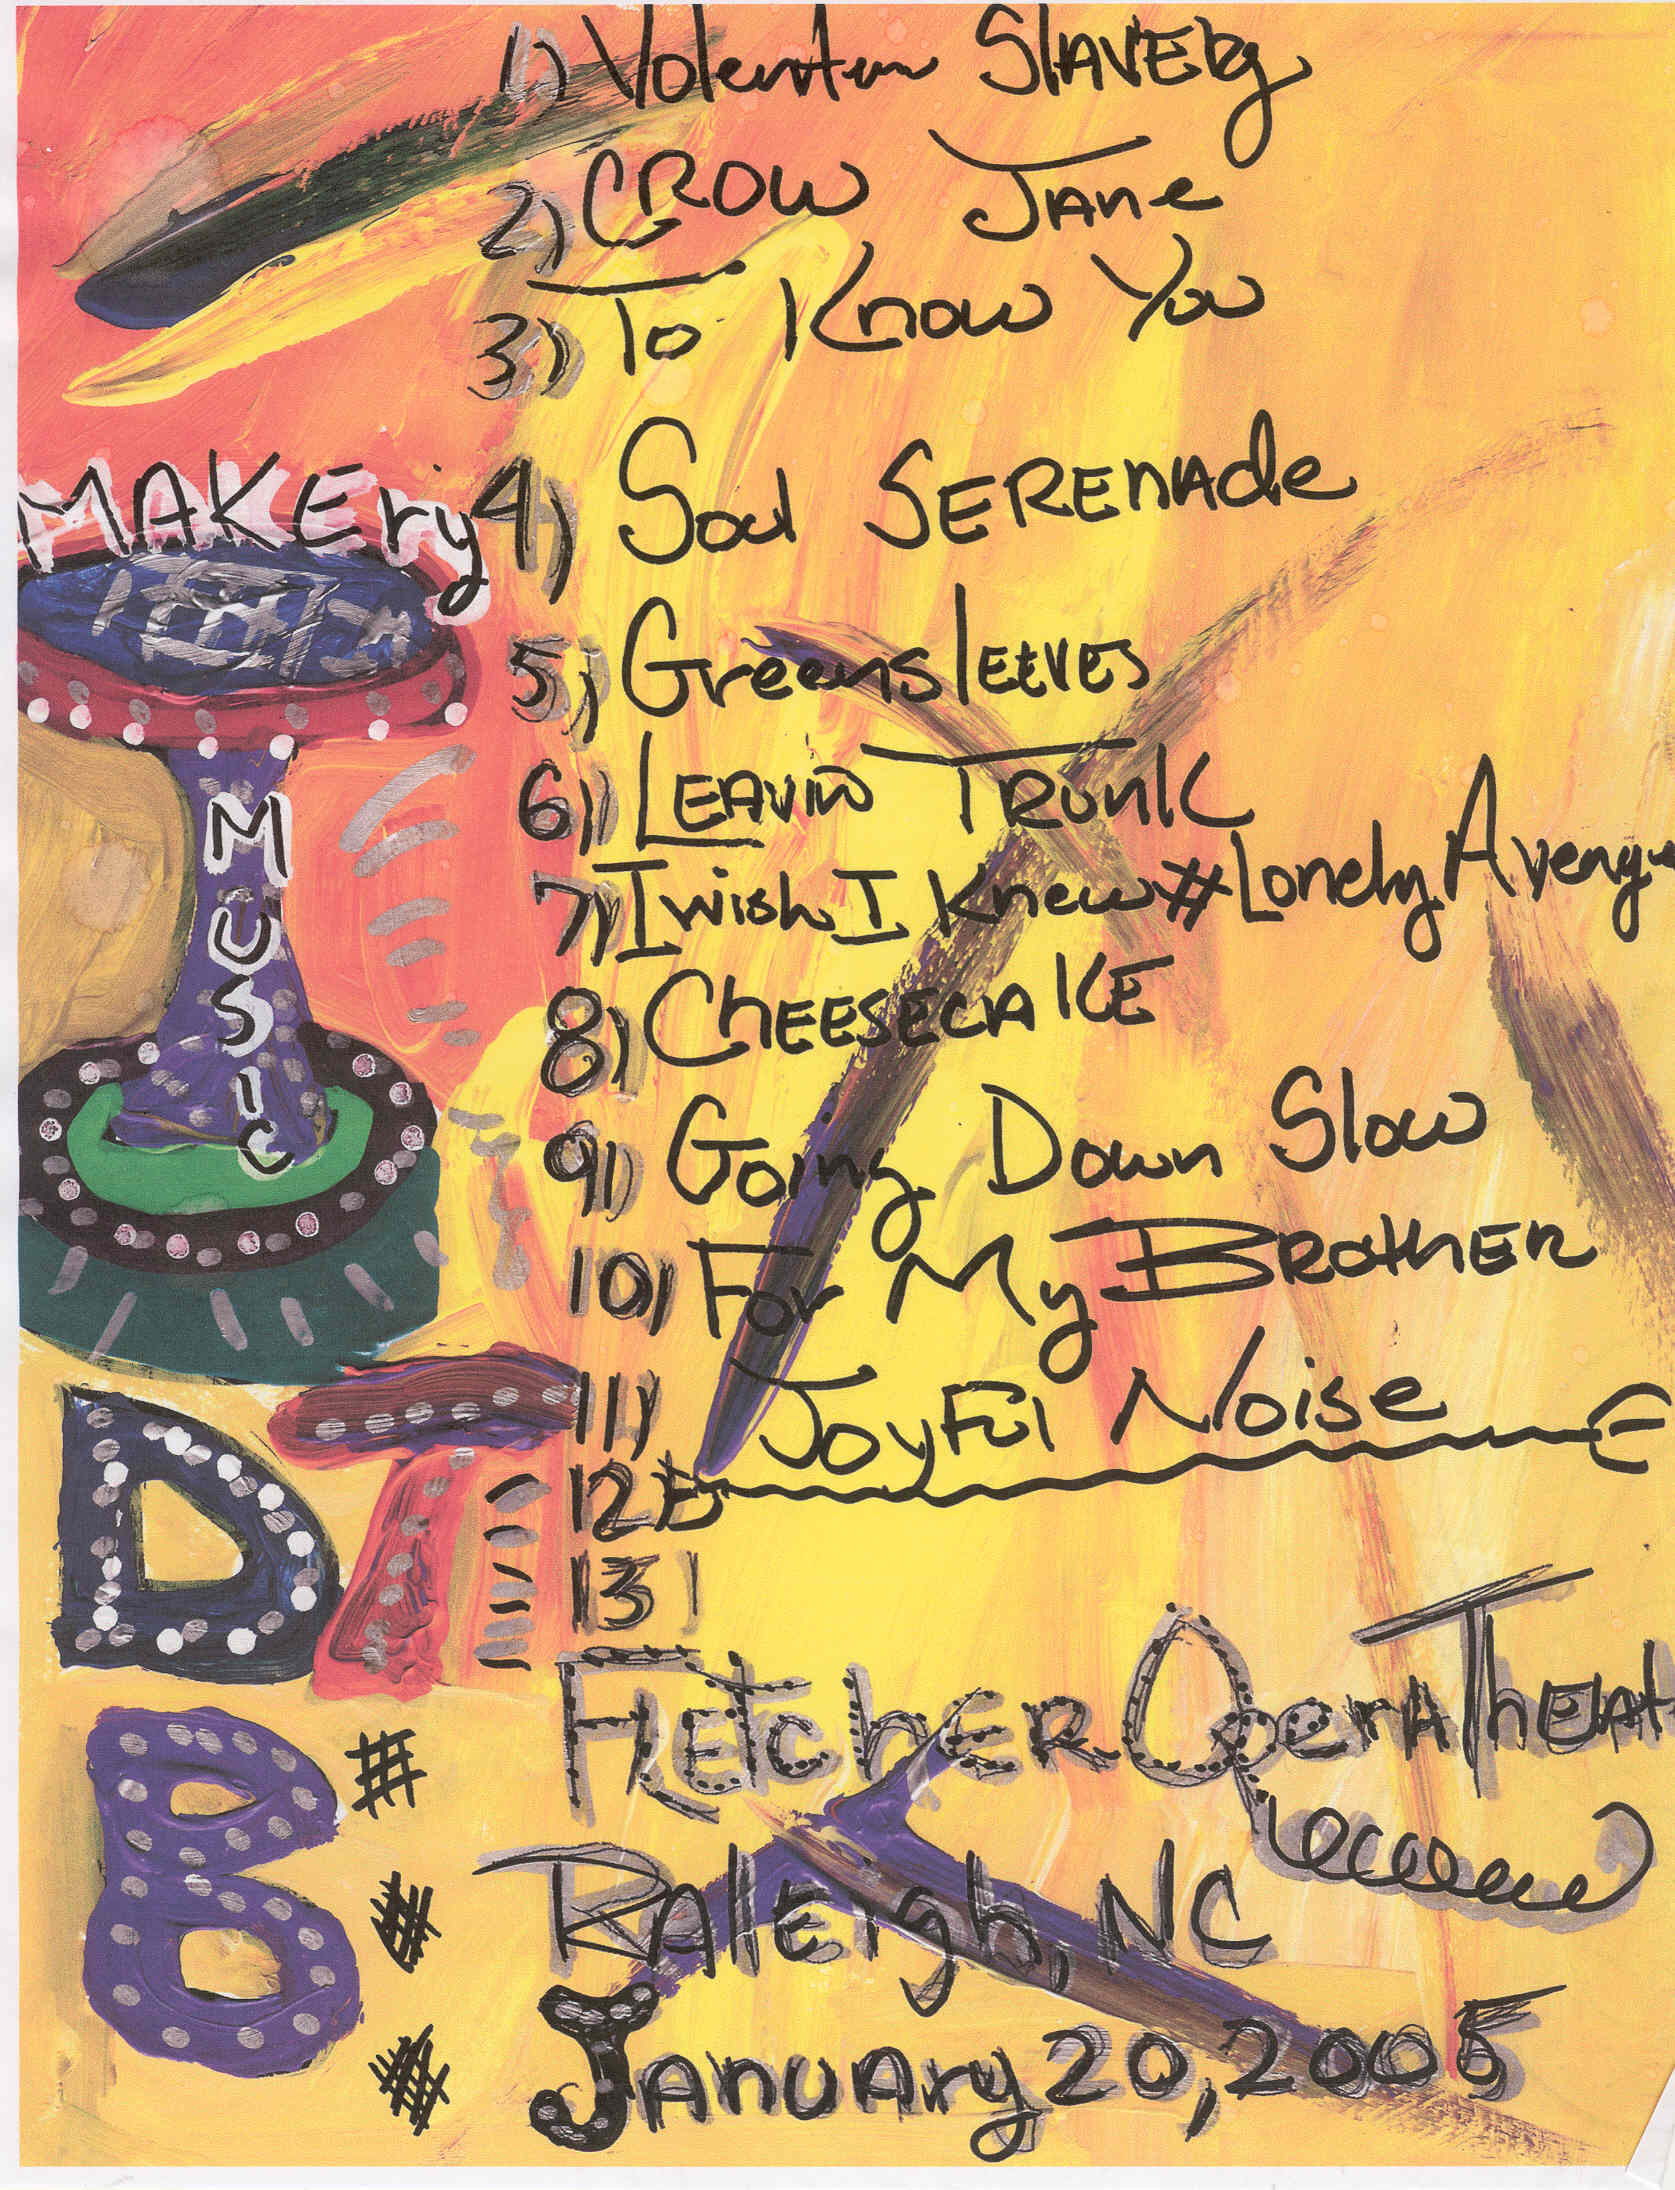 1) Volentun SlAVERy
2) CROW JAne
3) To Know You
4) Soul SERENAde
MAKEry
5) GreensleeVes
6) LEAVin TRUnK
MUSIC
7) I wish I Knew # Lonely Avenue
8) CHEESECAKE
9) Going Down Slow
10) For My BROtHER
11) JoyFul Noise
12 E
13)
DTB
# FlEtcHER OperA THEAt
# RAlEigh, NC
# JAnuAry 20, 2005